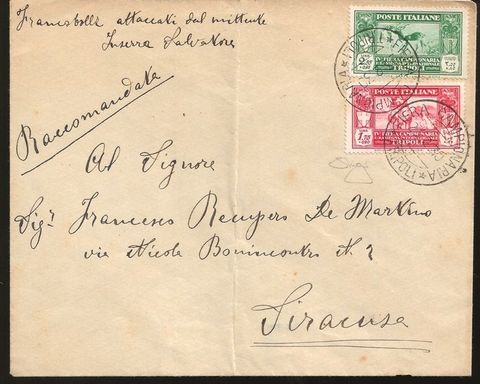 Francobolli attaccati dal mittente
Inserra Salvatore
Raccomandata
Al Signore
Sigr Francesco Recupero De Martino
via Nicola Bonincontro N. 2
Siracusa
POSTE ITALIANE
IV FIERA CAMPIONARIA
TRIPOLI
POSTE ITALIANE
IV FIERA CAMPIONARIA
TRIPOLI
FIERA CAMPIONARIA
TRIPOLI